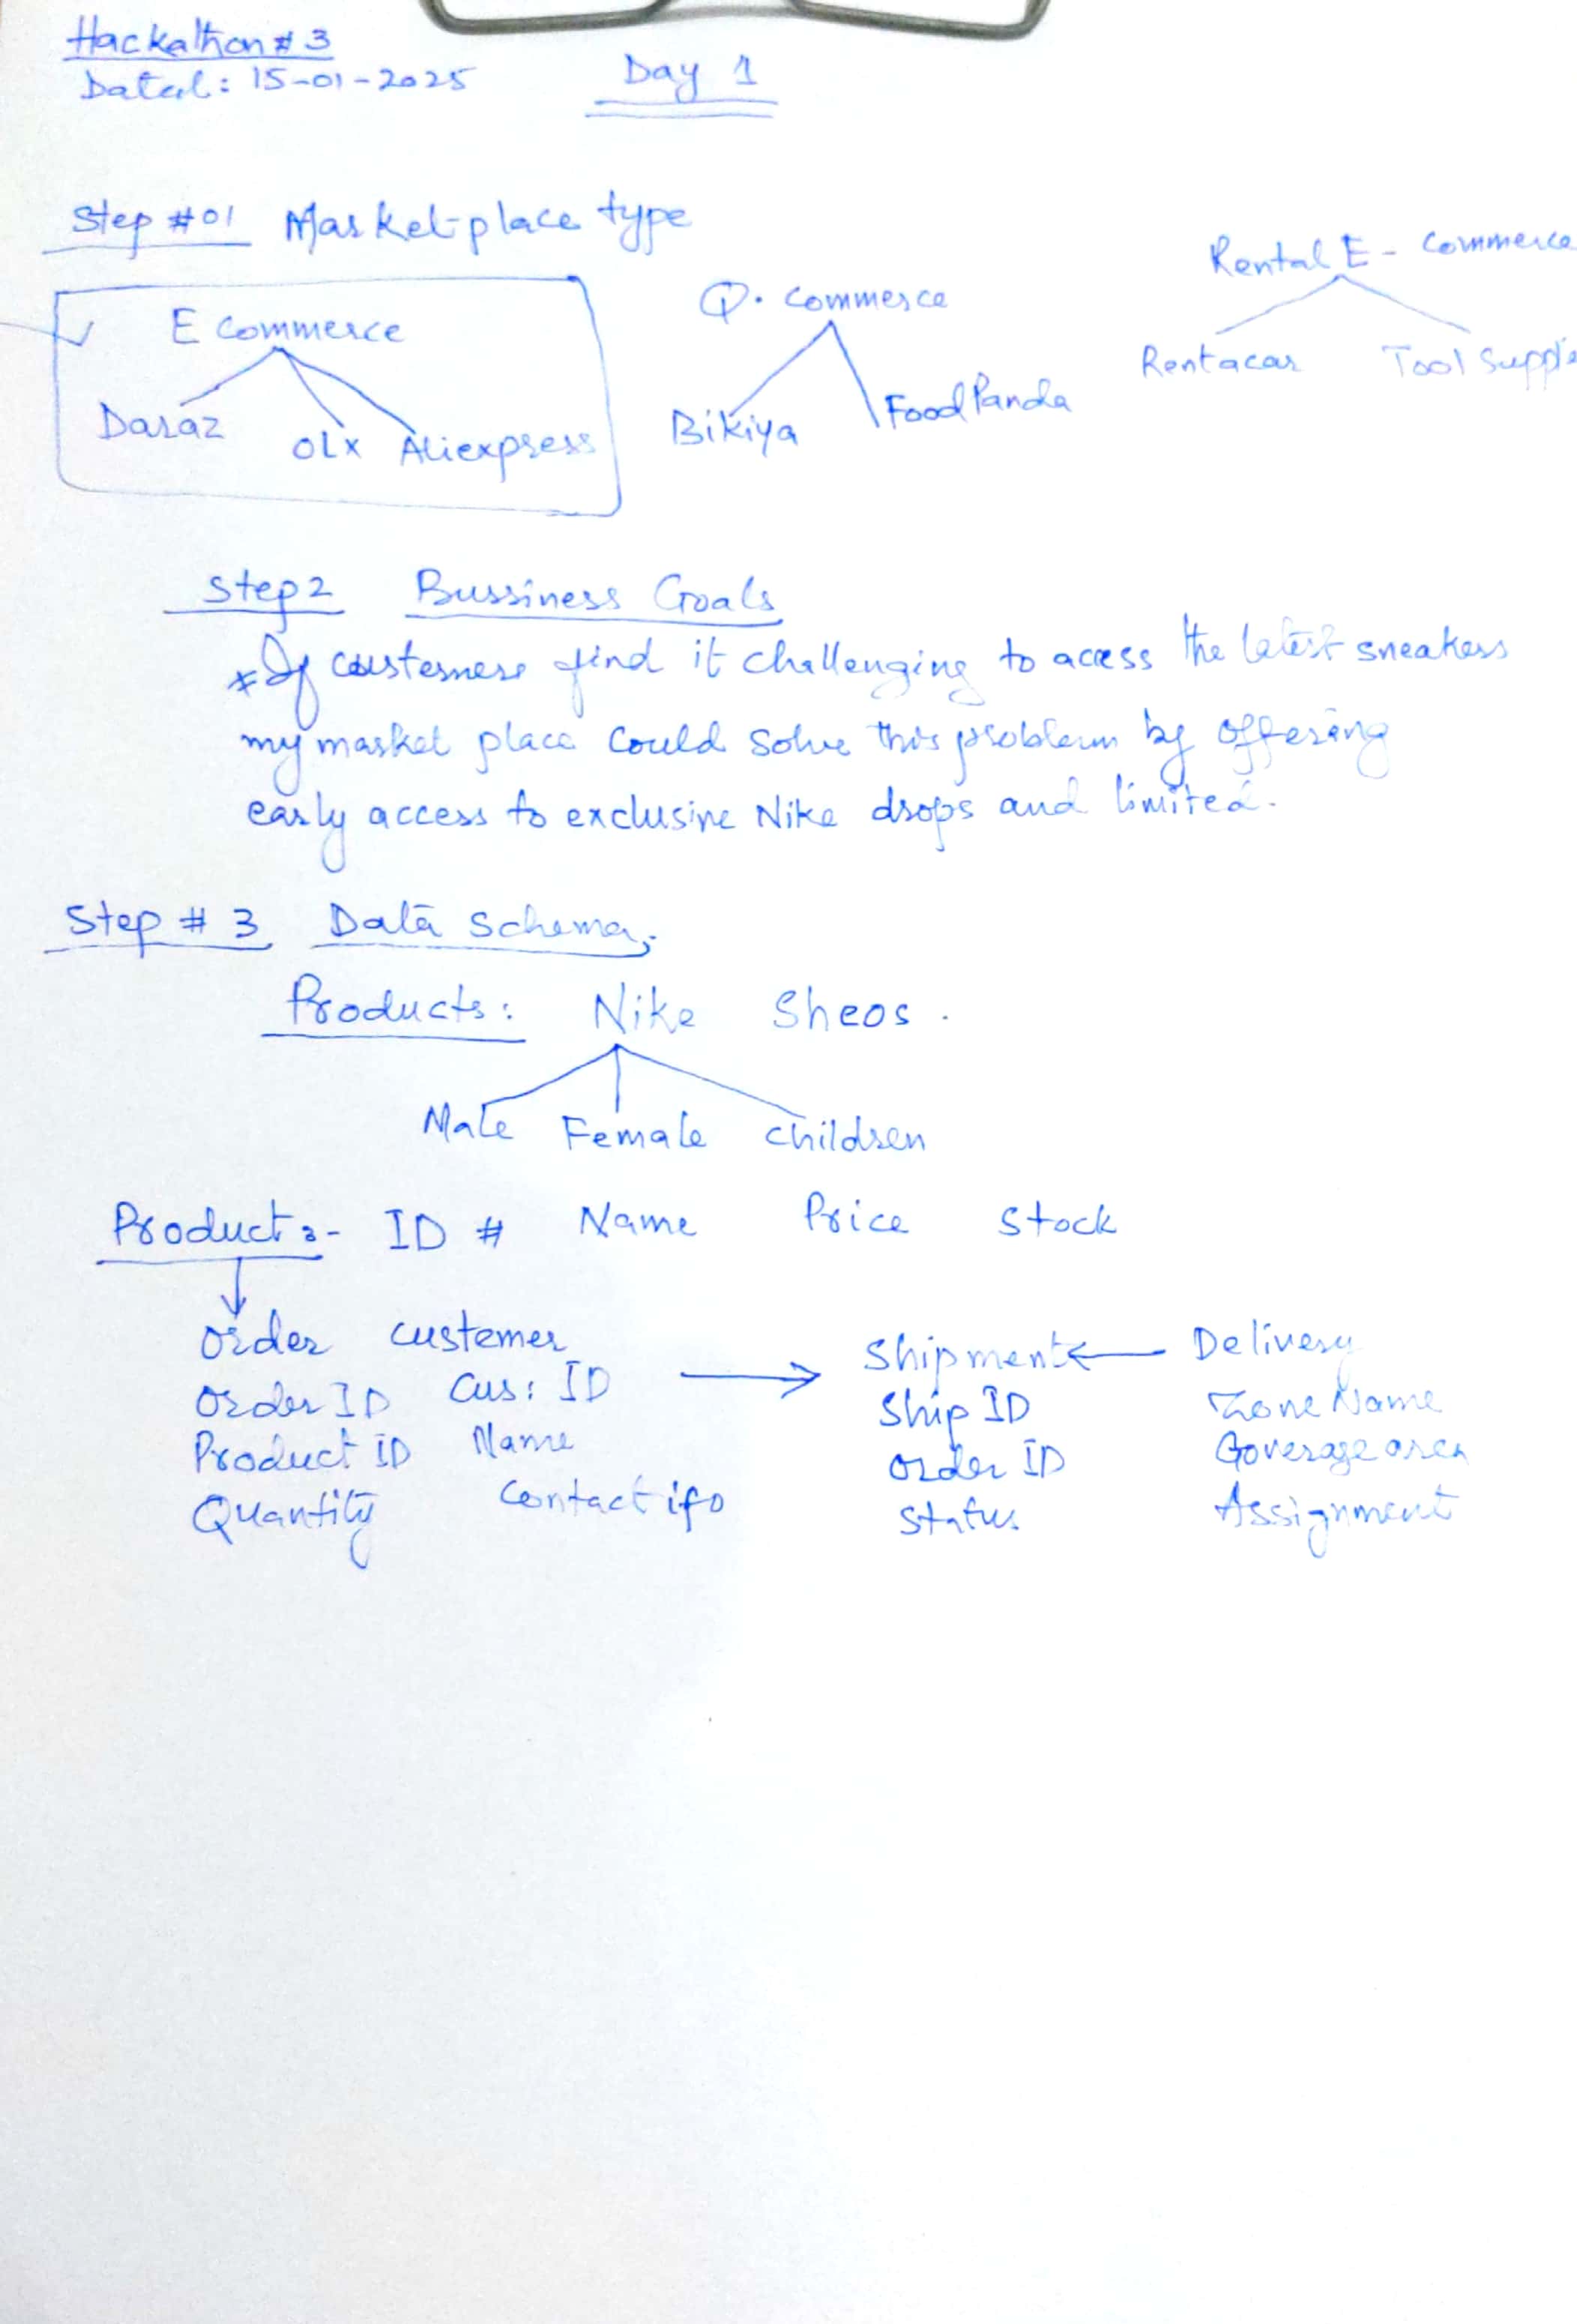 Hackalthon # 3
Dated: 15-01-2025
Day 1
Step #01 Market place type
E Commerce
Daraz
OLX
Aliexpress
Q. Commerce
Bikiya
Food Panda
Rental E-Commerce
Rentacar
Tool Supplie
Step 2 Bussiness Goals
* If customers find it challenging to access the latest sneakers
my market place could solve this problem by offering
early access to exclusive Nike drops and limited.
Step # 3 Data Schema,
Products: Nike Sheos.
Male Female Children
Product :- ID # Name Price Stock
Order Custemer Shipment Delivery
Order ID Cus: ID Ship ID Zone Name
Product ID Name Order ID Coverage area
Quantity Contact ifo Status Assignment